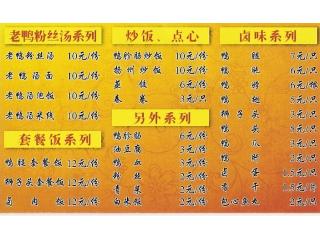 老鸭粉丝汤系列
老鸭粉丝汤 10元/份
老鸭汤面 10元/份
老鸭汤饭 10元/份
老鸭汤米线 10元/份
套餐饭系列
鸭腿套餐饭 12元/份
狮子头套餐饭 12元/份
卤肉饭 12元/份
炒饭、点心
鸭胗肠炒饭 10元/份
扬州炒饭 10元/份
蒸饺 6元/份
春卷 3元/只
另外系列
鸭胗肠 6元/份
油豆腐 3元/份
鸭血 3元/份
粉丝 2元/份
青菜 2元/份
白米饭 2元/份
卤味系列
鸭腿 7元/只
鸭 6元/只
鸭胗
鸭翅 5元/只
狮子头 5元/只
鸭头 4元/只
鸭爪
鸭脖 2元/只
卤蛋
香干 1.5元/只
包心鱼丸 2元/只